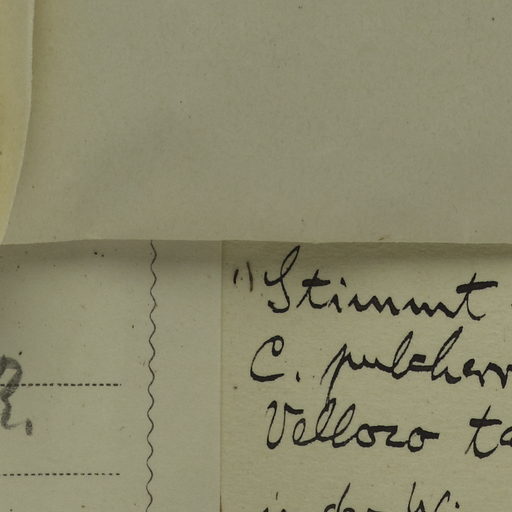 "Stimmt
C. pulcherr
Velloso ta
in der Wi
R.